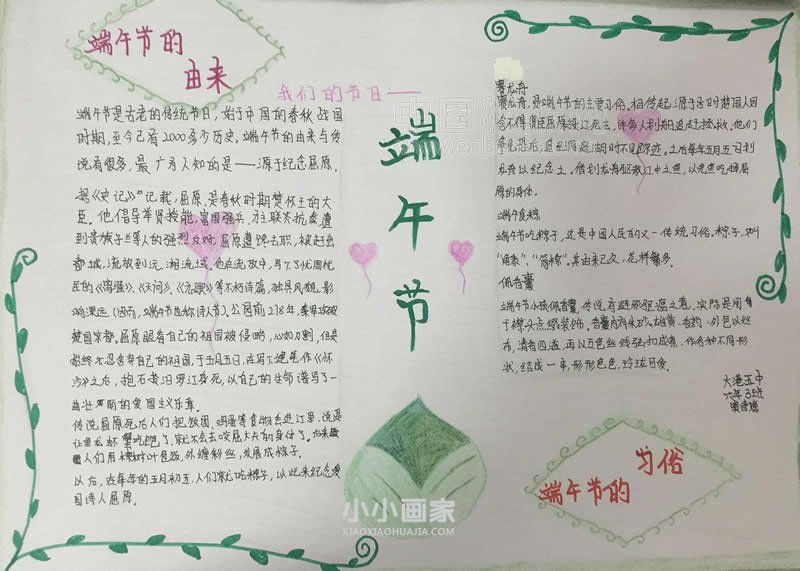 端午节的
由来
我们的节日——
端午节
端午节是古老的传统节日，始于中国的春秋战国
时期，至今已有2000多少历史。端午节的由来与传
说有很多，最广为人知的是——源于纪念屈原。
据《史记》记载，屈原，是春秋时期楚怀王的大
臣。他倡导举贤授能，富国强兵，力主联齐抗秦，遭
到贵族子兰等人的强烈反对，屈原遭馋去职，被赶出
都城，流放到沅、湘流域。他在流放中，写下了忧国忧
民的《离骚》、《天问》、《九歌》等不朽诗篇，独具风貌，影
响深远（因而，端午节也称诗人节）。公园前278年，秦军攻破
楚国京都。屈原眼看自己的祖国被侵略，心如刀割，但是
始终不忍舍弃自己的祖国，于五月五日，在写下绝笔作《怀
沙》之后，抱石投汨罗江身死，以自己的生命谱写了一
曲壮丽的爱国主义乐章。
传说屈原死后人们把饭团、鸡蛋等食物丢进江里，说是
让鱼龙虾蟹吃饱了，就不会去咬屈大夫的身体了。后来
人们用树叶包饭，外缠彩丝，发展成棕子。
以后，在每年的五月初五，人们就吃棕子，以此来纪念爱
国诗人屈原。
赛龙舟
赛龙舟，是端午节的主要习俗。相传起源于古时楚国人因
舍不得贤臣屈原投江死去，许多人划船追赶拯救。他们
争先恐后，追至洞庭湖时不见踪迹。之后每年五月五日划
龙舟以纪念之。借划龙舟驱散江中之鱼，以免鱼吃掉屈
原的身体。
端午食粽
端午节吃粽子，这是中国人民的又一传统习俗。粽子，又叫
“角黍”、“筒粽”。其由来已久，花样繁多。
佩香囊
端午节小孩佩香囊，传说有避邪驱瘟之意，实际是用
于襟头点缀装饰。香囊内有朱砂、雄黄、香药，外包以丝
布，清香四溢，再以五色丝线弦扣成索，作各种不同形
状，结成一串，形形色色，玲珑可爱。
大港五中
六年3班
端午节的
习俗
小小画家
XIAOXIAOHUAJIA.COM